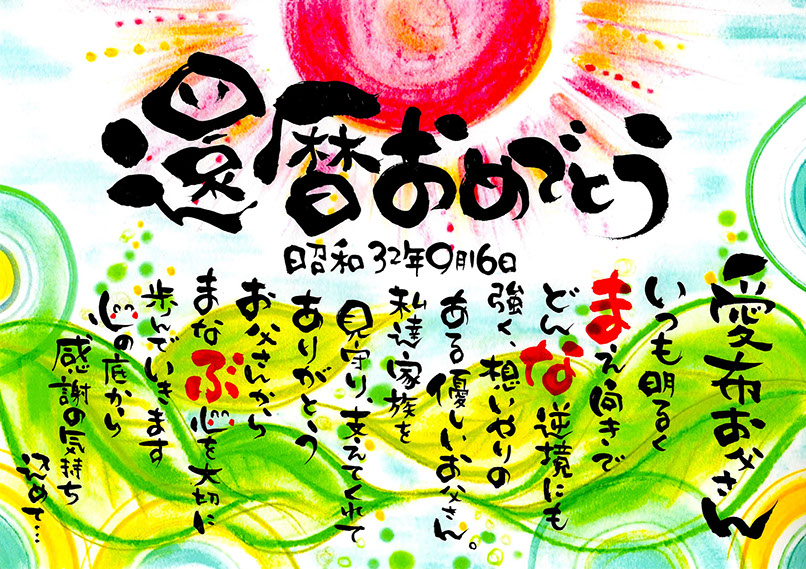 還暦おめでとう
昭和32年9月16日
愛布お父さん
いつも明るく
まえ向きで
どんな逆境にも
強く、想いやりの
ある優しいお父さん。
私達家族を
見守り、支えてくれて
ありがとう
お父さんから
まなぶ心を大切に
歩んでいきます
心の底から
感謝の気持ち
込めて…